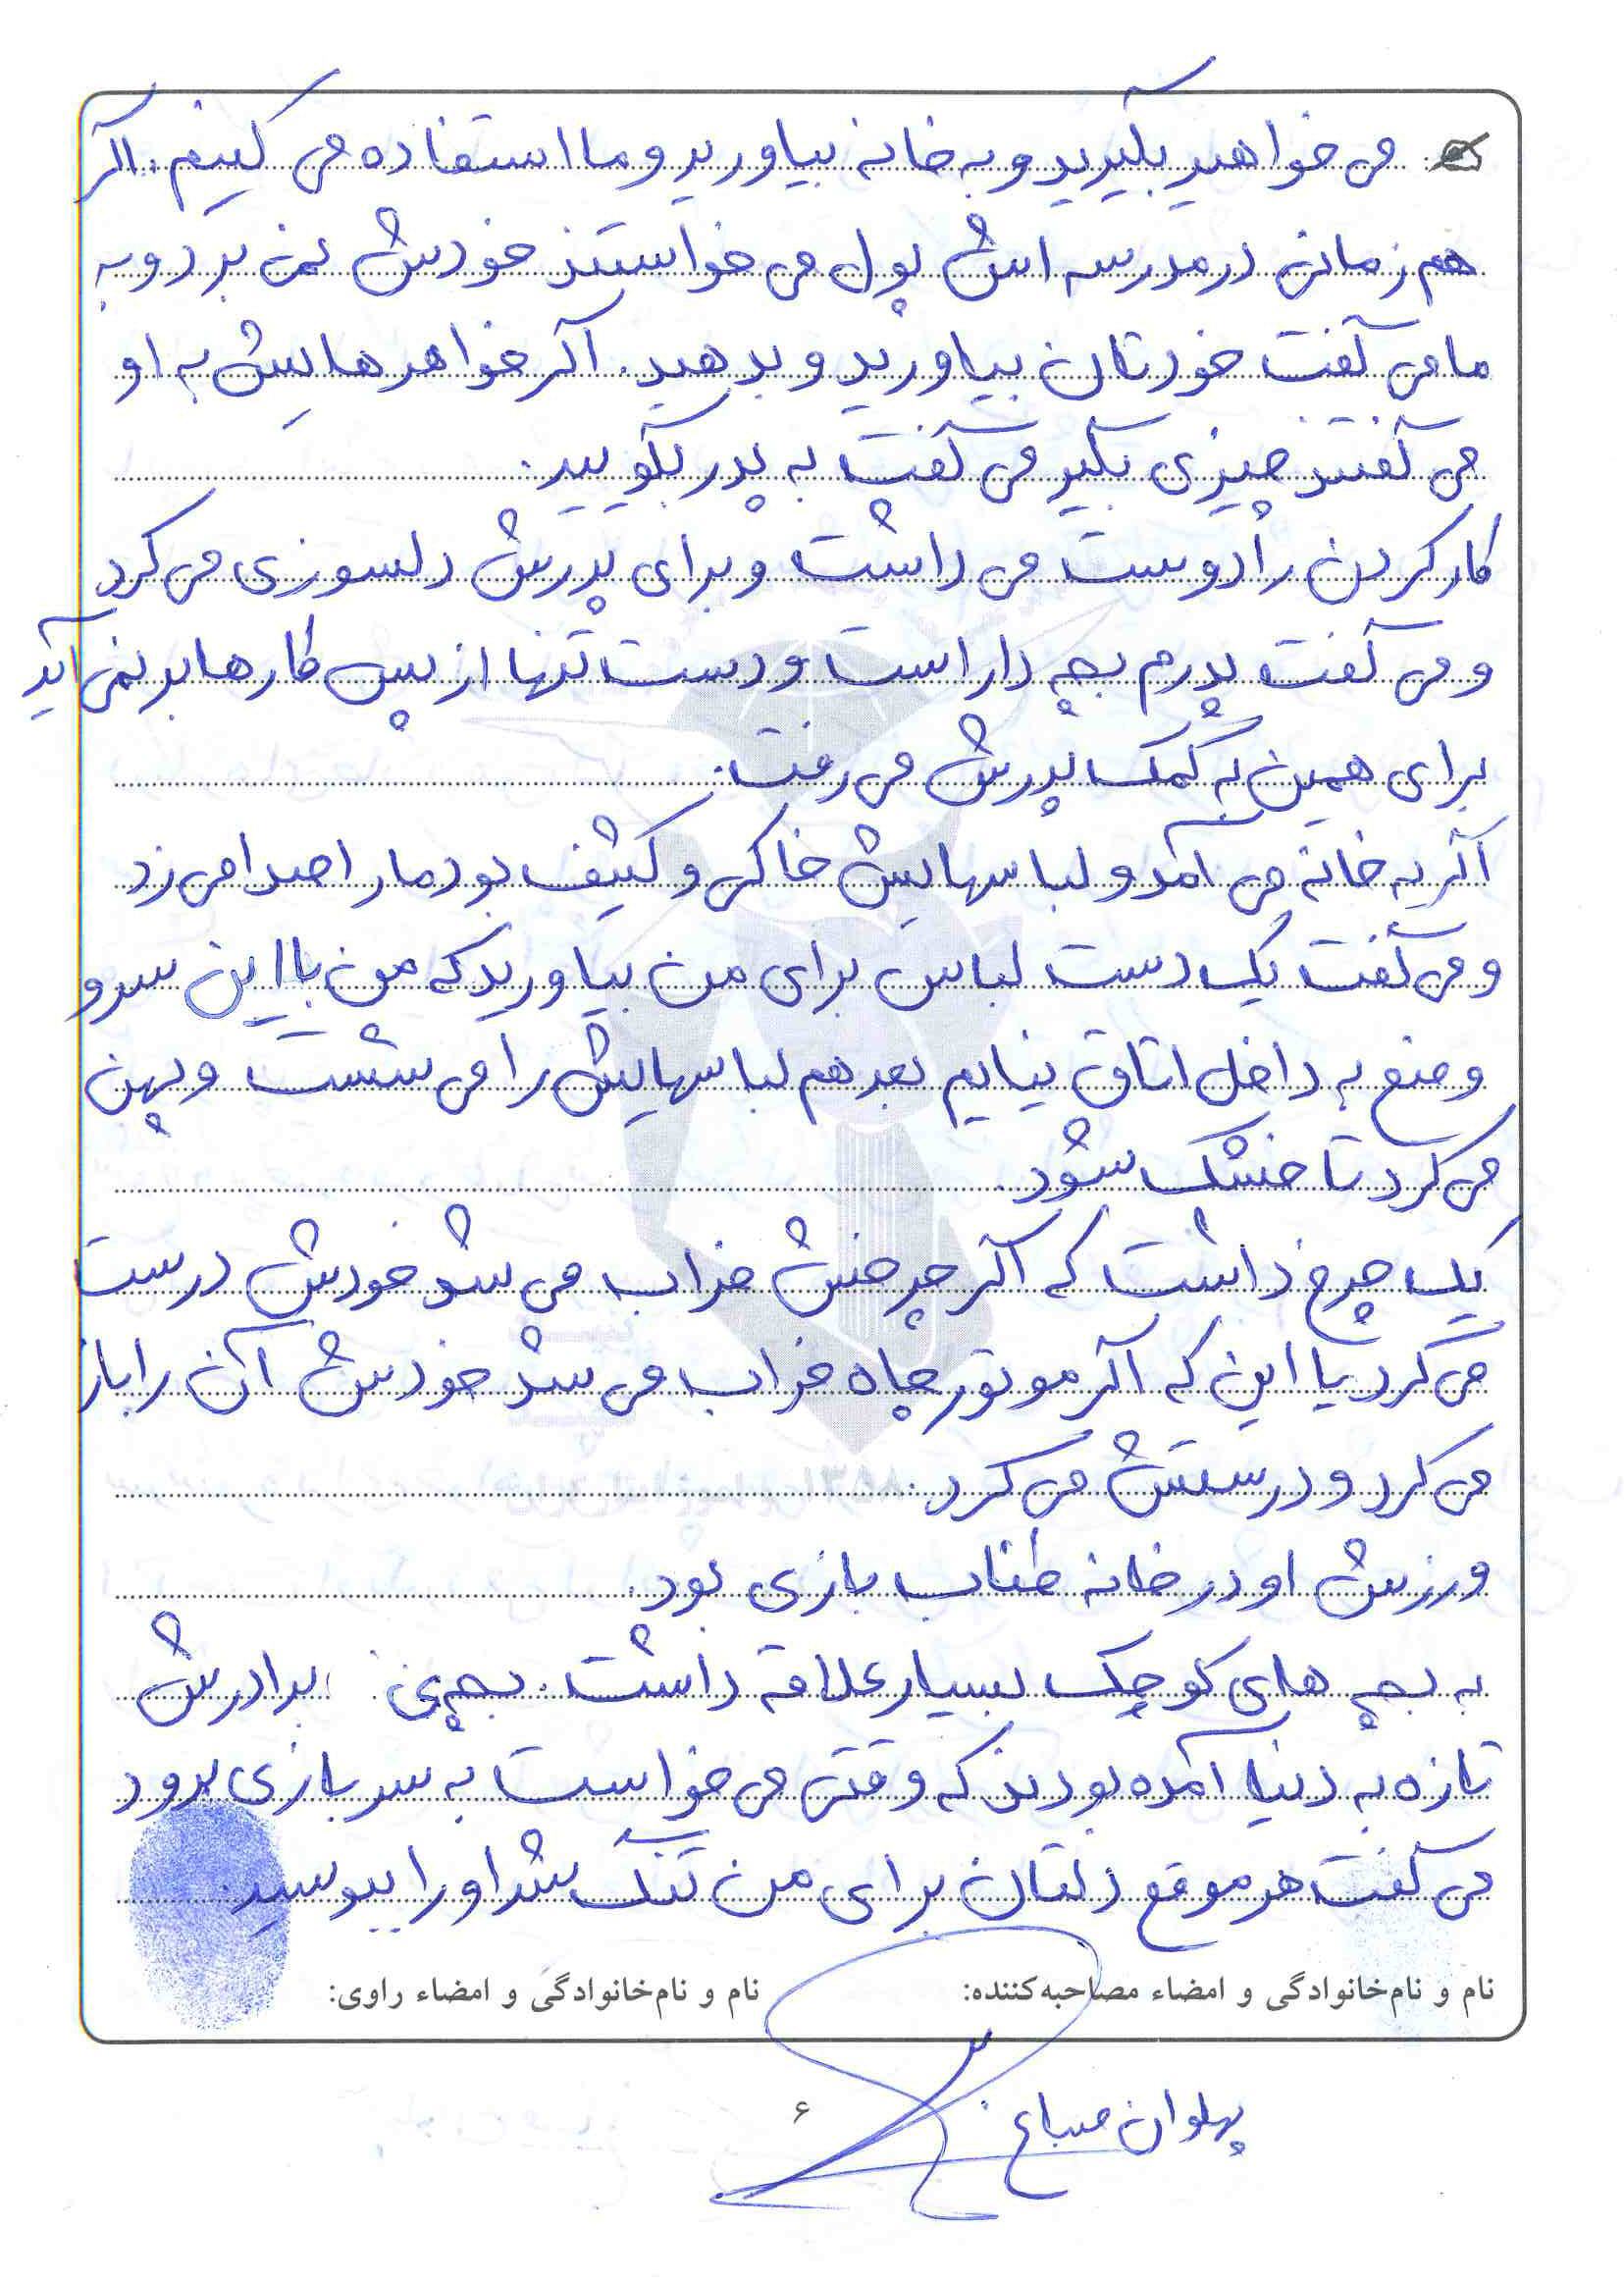 می خواهید بگیرید و به خانه بیاورید و ما استفاده می کنیم. اگر
هم زمانی در مدرسه اش پول می خواستند خودش نمی برد و به
ما می گفت خودتان بیاورید و بدهید. اگر خواهرهایش به او
می گفتند چیزی بگیر می گفت به پدر بگویید.
کار کردن را دوست می داشت و برای پدرش دلسوزی می کرد
و می گفت پدرم بچه دار است و دست تنها از پس کارها بر نمی آید
برای همین به کمک پدرش می رفت.
اگر به خانه می آمد و لباسهایش خاکی و کثیف بود ما را صدا می زد
و می گفت یک دست لباس برای من بیاورید که من با این سر و
وضع به داخل اتاق نیایم بعد هم لباسهایش را می شست و پهن
می کرد تا خشک شود.
یک چرخ داشت که اگر چرخش خراب می شد خودش درست
می کرد یا این که اگر موتور چاه خراب می شد خودش آن را باز
می کرد و درستش می کرد.
ورزش او در خانه طناب بازی بود.
به بچه های کوچک بسیار علاقه داشت. بچه ی برادرش
تازه به دنیا آمده بودند که وقتی می خواست به سربازی برود
می گفت هر موقع دلتان برای من تنگ شد او را ببوسید.
نام و نام‌خانوادگی و امضاء مصاحبه‌کننده: نام و نام‌خانوادگی و امضاء راوی:
پهلوان صباغ
۶
۱۳۵۸